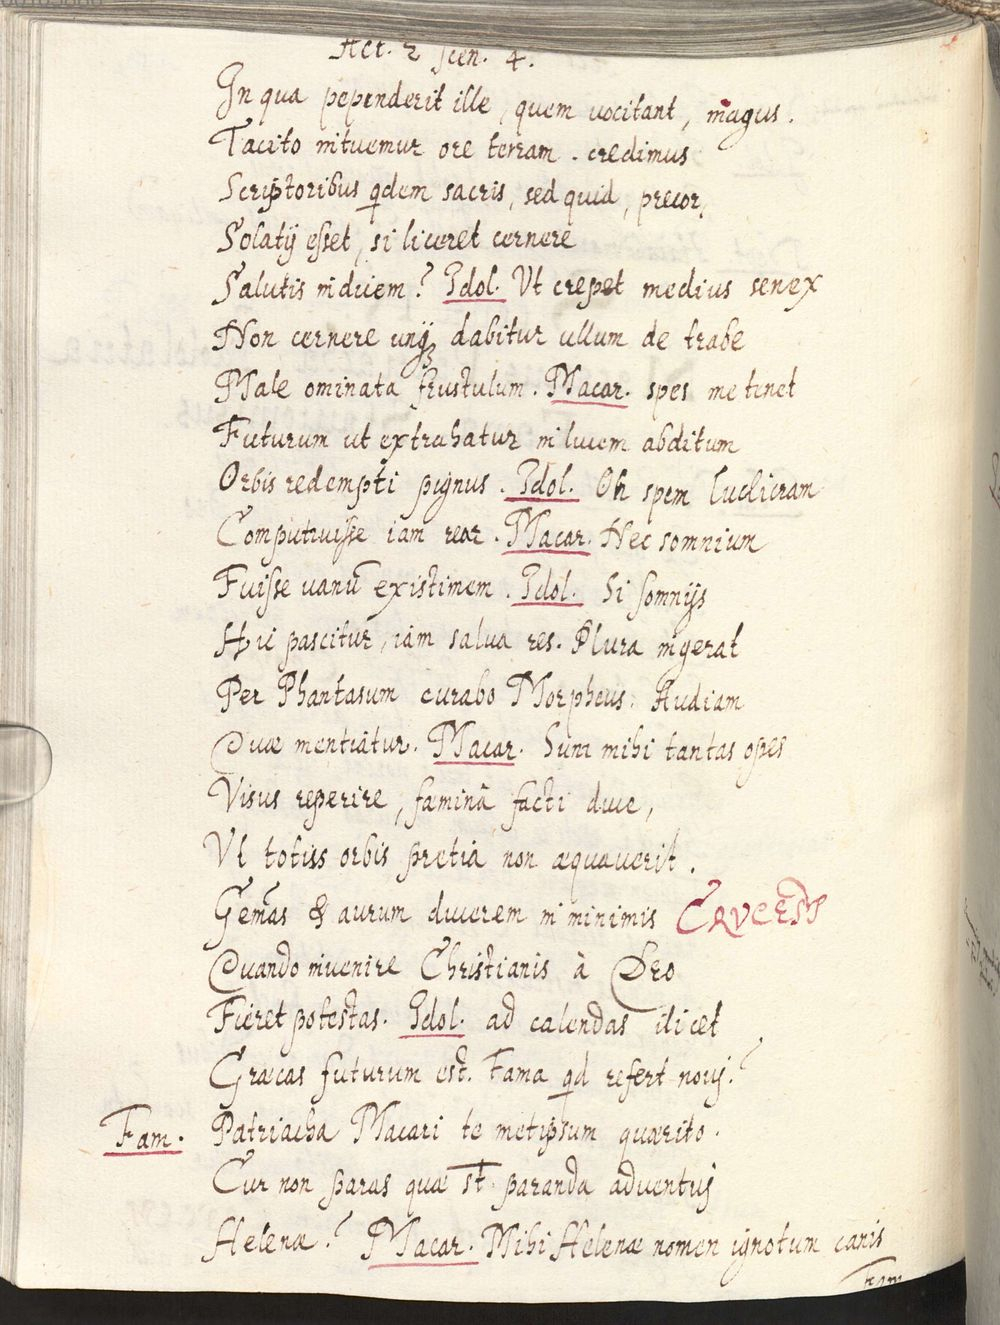 Act. 2 Scen. 4.
In qua pependerit ille, quem vocitant, magus.
Tacito intuemur ore terram. credimus
Scriptoribus qdem sacris, sed quid, precor,
Solatij esset, si liceret cernere
Salutis indicem? Idol. Ut crepet medius senex
Non cernere unq dabitur ullum de trabe
Male ominata frustulum. Macar. spes me tenet
Futurum ut extrahatur in lucem abditum
Orbis redempti pignus. Idol. Oh spem ludicram
Computruisse iam reor. Macar. Nec somnium
Fuisse vanū existimem. Idol. Si somnijs
Hic pascitur, iam salva res. Plura ingerat
Per Phantasum curabo Morpheus. Audiam
Quæ mentiatur. Macar. Sum mihi tantas opes
Visus reperire, fæminâ facti duce,
Ut totius orbis pretia non æquaverit.
Gem̄as & aurum ducerem in minimis CRVCEDS
Quando invenire Christianis à Deo
Fieret potestas. Idol. ad calendas ilicet
Græcas futurum est. Fama qd refert novj?
Fam. Patriacha Macari te metipsum quærito.
Cur non paras quæ st̄ paranda adventuj
Helenæ? Macar. Mihi Helenæ nomen ignotum canis
Fam